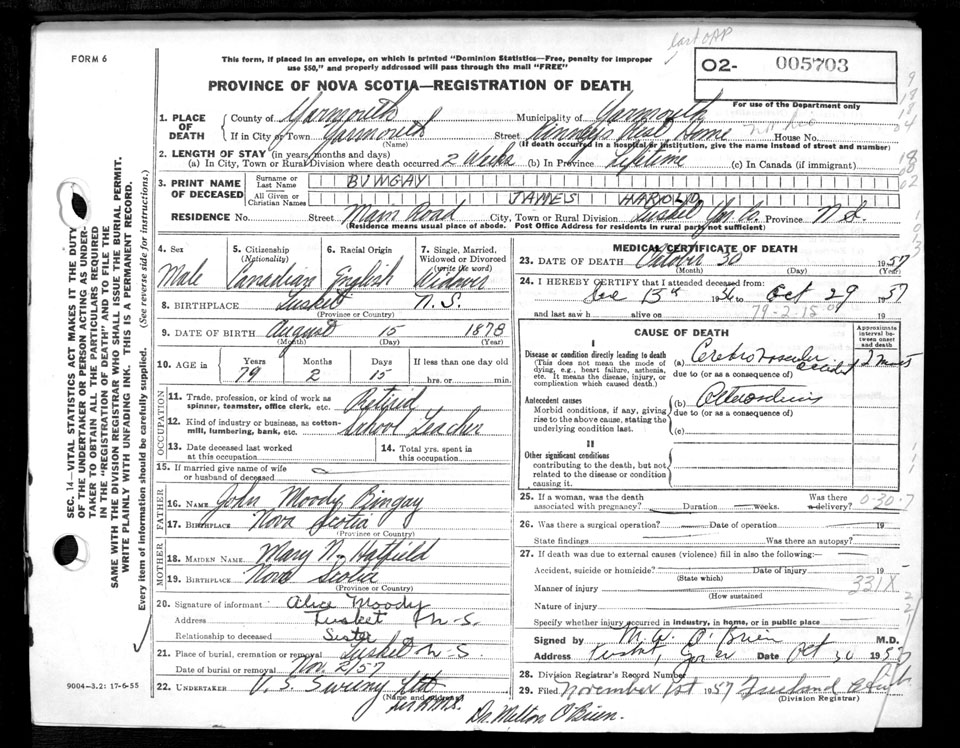 last OAP
FORM 6
This form, if placed in an envelope, on which is printed "Dominion Statistics—Free, penalty for improper
use $50," and properly addressed will pass through the mail "FREE"
02- 005703
PROVINCE OF NOVA SCOTIA—REGISTRATION OF DEATH
For use of the Department only
1. PLACE OF DEATH
County of Yarmouth Municipality of Yarmouth
If in City or Town Yarmouth Street Rest Home House No.
(Name) (If death occurred in a hospital or institution, give the name instead of street and number)
2. LENGTH OF STAY (in years, months and days)
(a) In City, Town or Rural Division where death occurred 2 Weeks (b) In Province Lifetime (c) In Canada (if immigrant)
3. PRINT NAME OF DECEASED
Surname or Last Name BUMGAY
All Given or Christian Names JAMES HAROLD
RESIDENCE No. Street Main Road City, Town or Rural Division Tusket Yar. Co. Province N.S.
(Residence means usual place of abode. Post Office Address for residents in rural parts not sufficient)
4. Sex Male
5. Citizenship (Nationality) Canadian
6. Racial Origin English
7. Single, Married, Widowed or Divorced (write the word) Widower
8. BIRTHPLACE Tusket N.S.
(Province or Country)
9. DATE OF BIRTH August 15 1878
(Month) (Day) (Year)
10. AGE in Years 79 Months 2 Days 15 If less than one day old
hrs. or min.
OCCUPATION
11. Trade, profession, or kind of work as spinner, teamster, office clerk, etc. Retired
12. Kind of industry or business, as cotton-mill, lumbering, bank, etc. School Teacher
13. Date deceased last worked at this occupation
14. Total yrs. spent in this occupation
15. If married give name of wife or husband of deceased
FATHER
16. NAME John Moody Bingay
17. BIRTHPLACE Nova Scotia
(Province or Country)
MOTHER
18. MAIDEN NAME Mary N. Hatfield
19. BIRTHPLACE Nova Scotia
(Province or Country)
20. Signature of informant Alice Moody
Address Tusket N.S.
Relationship to deceased Sister
21. Place of burial, cremation or removal Tusket N.S.
Date of burial or removal Nov. 2/57
22. UNDERTAKER V. S. Sweeny Ltd
(Name and address)
MEDICAL CERTIFICATE OF DEATH
23. DATE OF DEATH October 30 1957
(Month) (Day)
24. I HEREBY CERTIFY that I attended deceased from:
Dec 13th 1956 to Oct 29 1957
and last saw h alive on 19
79-2-15
CAUSE OF DEATH
Approximate interval between onset and death
I
Disease or condition directly leading to death
(This does not mean the mode of dying, e.g., heart failure, asthenia, etc. It means the disease, injury, or complication which caused death.)
(a) Cerebro Vascular accident
due to (or as a consequence of)
Antecedent causes
Morbid conditions, if any, giving rise to the above cause, stating the underlying condition last.
(b)
due to (or as a consequence of)
(c)
II
Other significant conditions
contributing to the death, but not related to the disease or condition causing it.
25. If a woman, was the death associated with pregnancy? Duration weeks. Was there a delivery? 0-30-7
26. Was there a surgical operation? Date of operation 19
State findings Was there an autopsy?
27. If death was due to external causes (violence) fill in also the following:—
Accident, suicide or homicide? Date of injury 19
(State which)
Manner of injury 331X
(How sustained)
Nature of injury
Specify whether injury occurred in industry, in home, or in public place
Signed by M. W. O'Brien M.D.
Address Date Oct 30 1957
28. Division Registrar's Record Number
29. Filed November 1st 1957
(Division Registrar)
Dr. Melton O'Brien.
9004-3.2: 17-6-55
SEC. 14—VITAL STATISTICS ACT MAKES IT THE DUTY
OF THE UNDERTAKER OR PERSON ACTING AS UNDER-
TAKER TO OBTAIN ALL THE PARTICULARS REQUIRED
IN THE "REGISTRATION OF DEATH" AND TO FILE THE
SAME WITH THE DIVISION REGISTRAR WHO SHALL ISSUE THE BURIAL PERMIT.
WRITE PLAINLY WITH UNFADING INK. THIS IS A PERMANENT RECORD.
Every item of information should be carefully supplied. (See reverse side for instructions.)